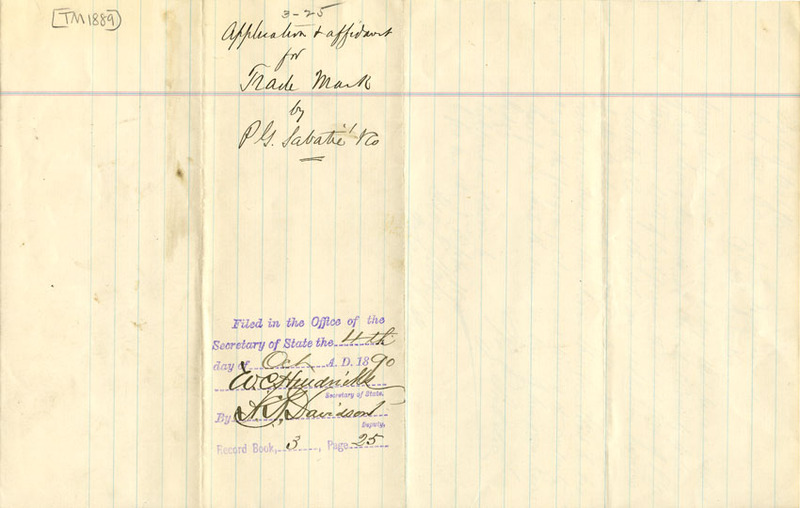 [TM1889]
3-25
Application & affidavit
for
Trade Mark
by
P. G. Sabatié & Co
Filed in the Office of the
Secretary of State the 4th
day of Oct A. D. 1890
W C Hendricks
Secretary of State.
By Davidson
Deputy.
Record Book, 3, Page 25